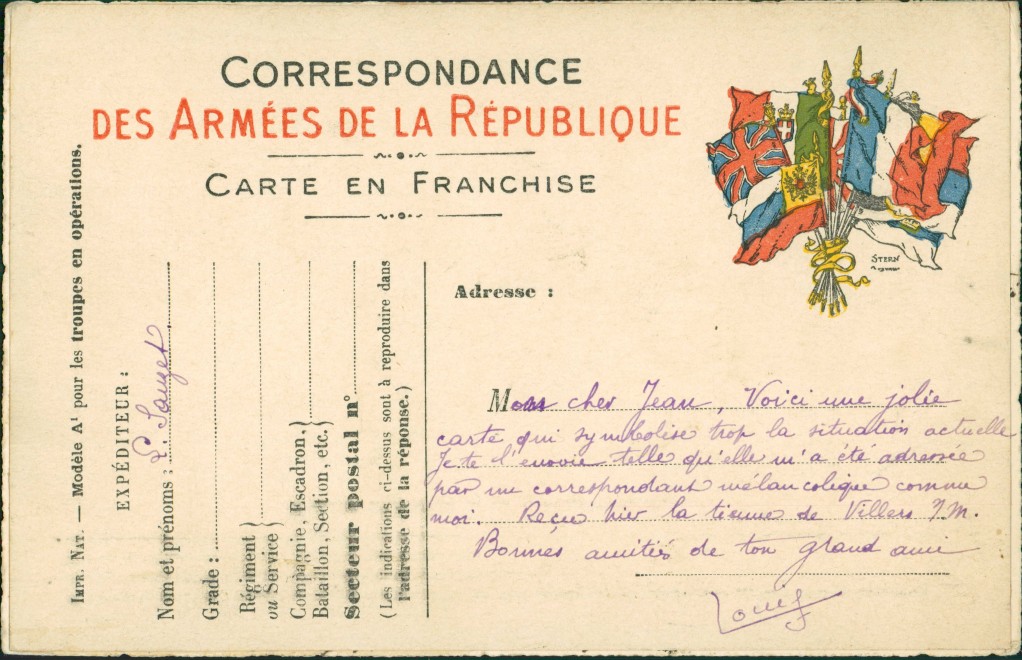 CORRESPONDANCE
DES ARMÉES DE LA RÉPUBLIQUE
CARTE EN FRANCHISE
IMPR. NAT. — Modèle A¹ pour les troupes en opérations.
EXPÉDITEUR :
Nom et prénoms : L.
Grade :
Régiment }
ou Service }
Compagnie, Escadron, }
Bataillon, Section, etc. }
Secteur postal n°
(Les indications ci-dessus sont à reproduire dans
l'adresse de la réponse.)
STERN
Adresse :
Mon cher Jean, Voici une jolie
carte qui symbolise trop la situation actuelle
Je te l'envoie telle qu'elle m'a été adressée
par un correspondant mélancolique comme
moi. Reçu hier la tienne de Villers
Bonnes amitiés de ton grand ami
Louis